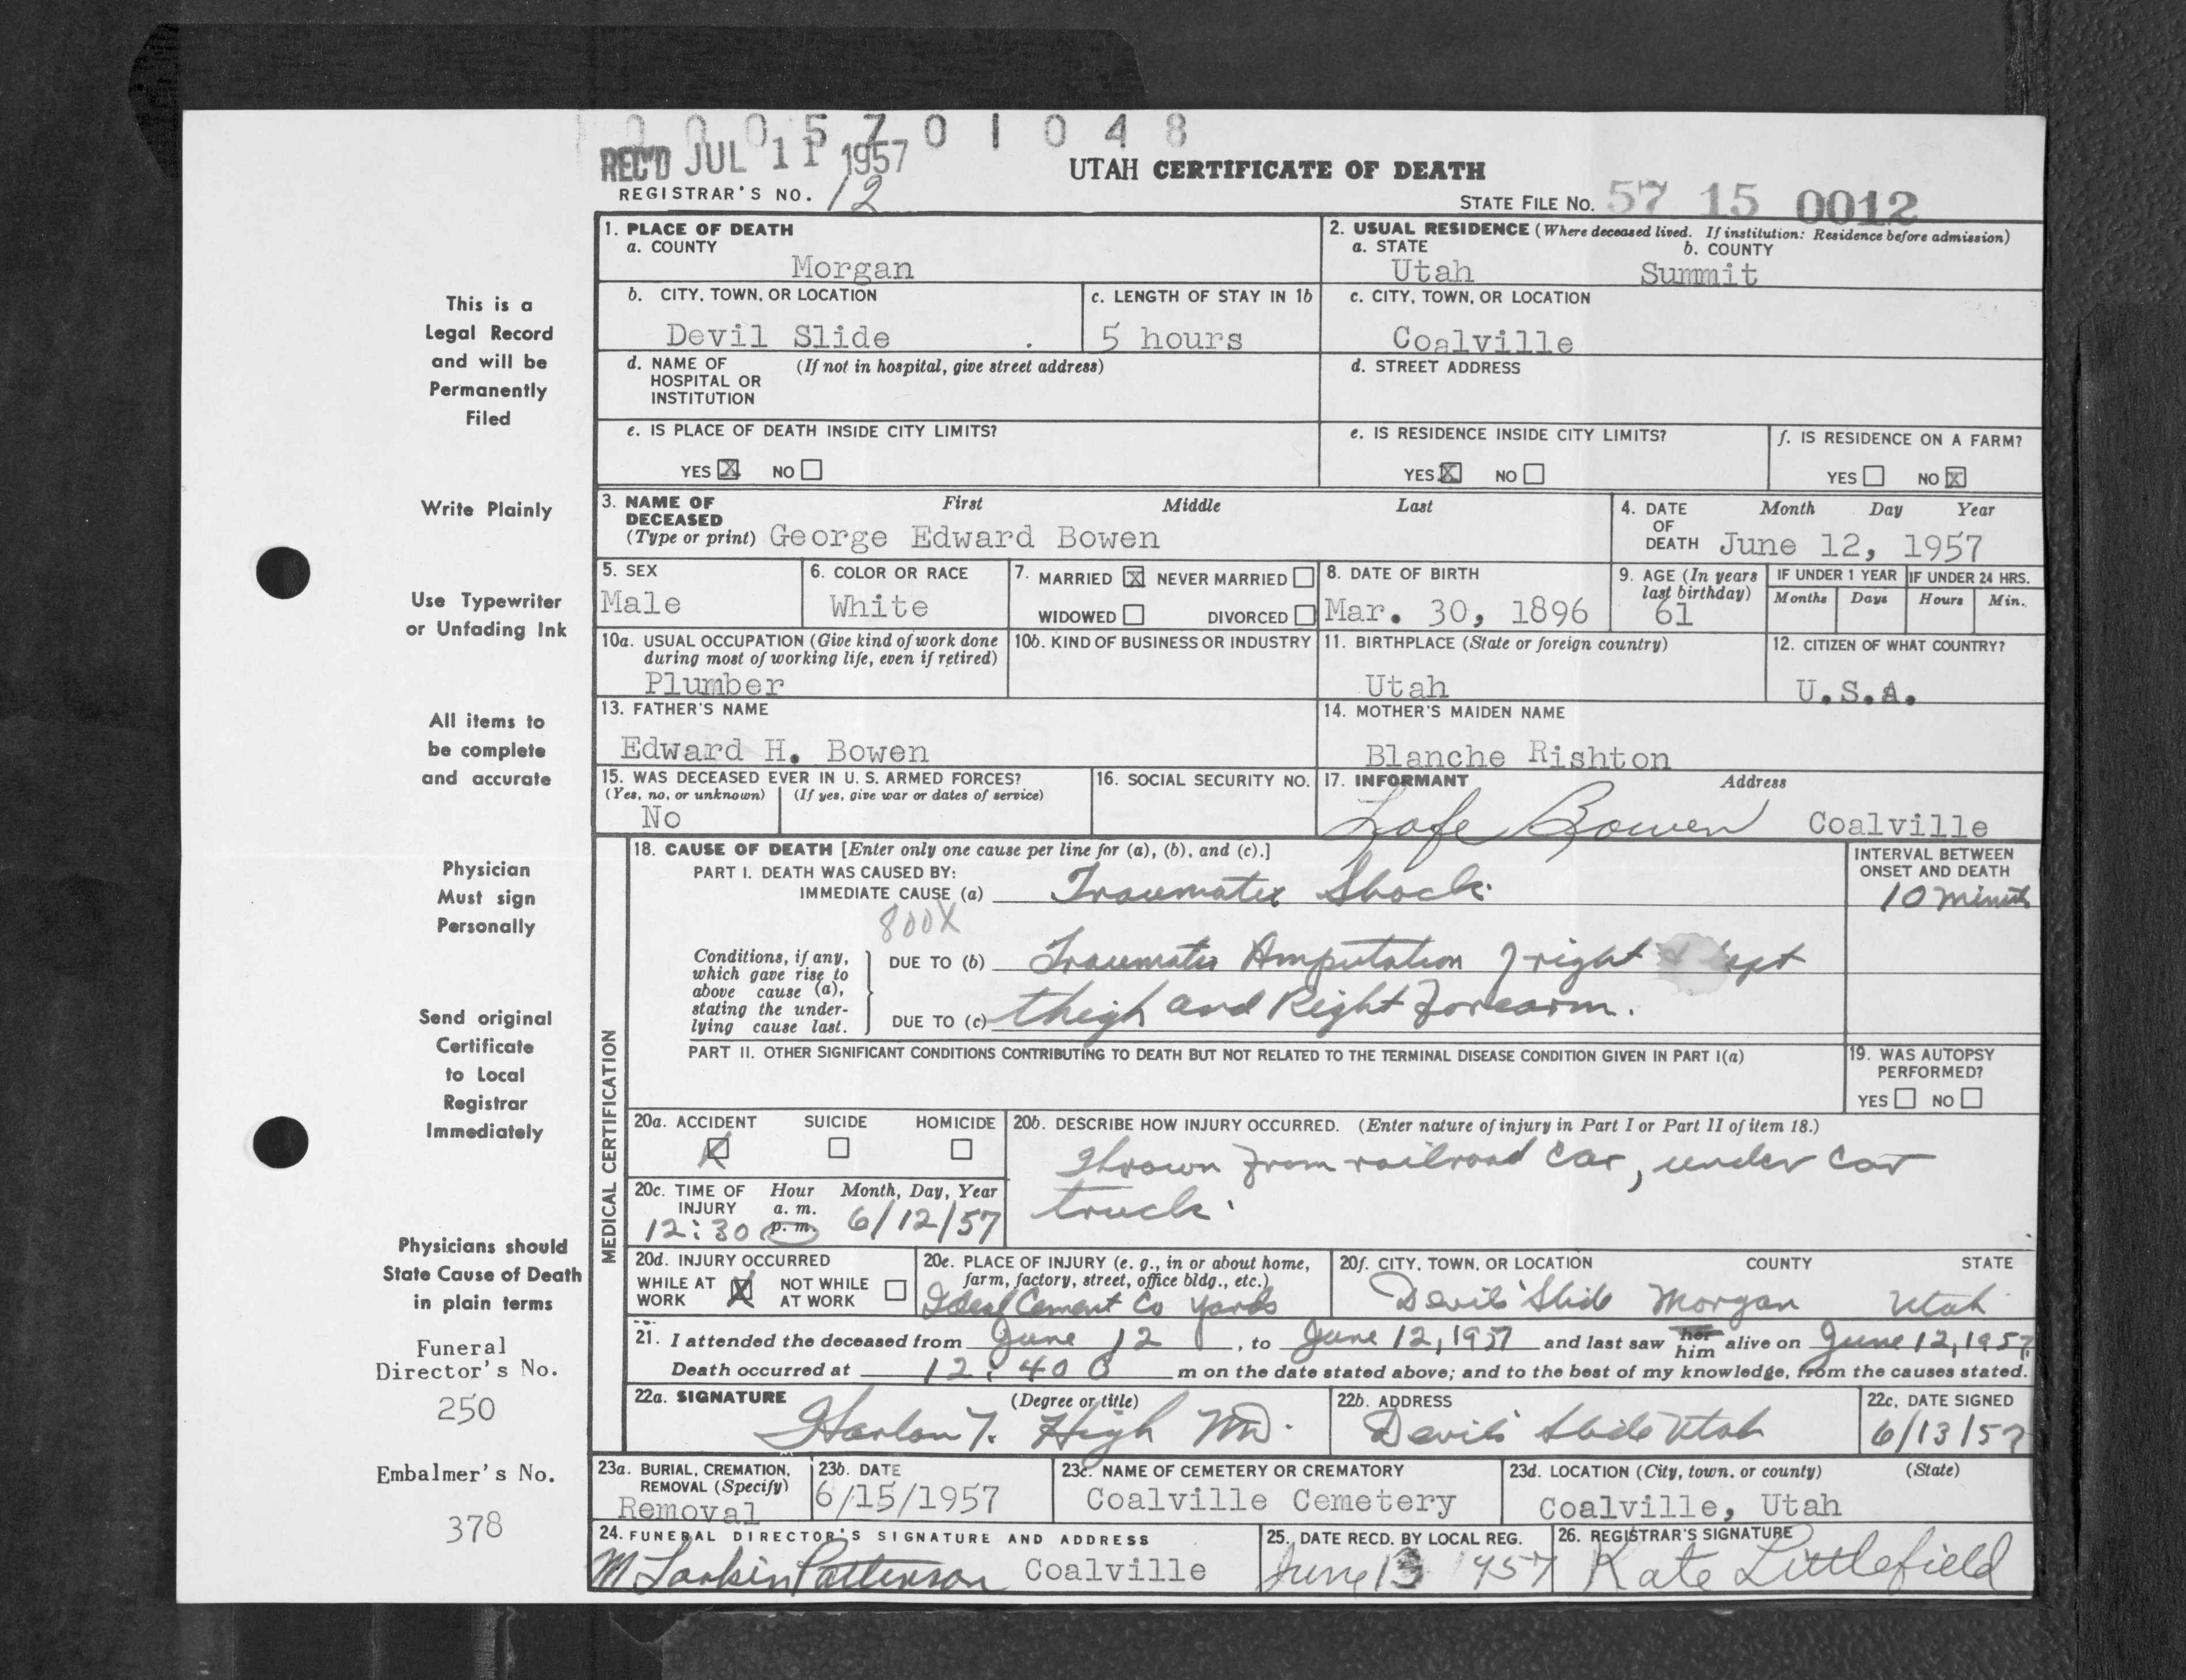 0005701048
REC'D JUL 11 1957
UTAH CERTIFICATE OF DEATH
REGISTRAR'S NO. 12
STATE FILE NO. 57 15 0012
This is a
Legal Record
and will be
Permanently
Filed
Write Plainly
Use Typewriter
or Unfading Ink
All items to
be complete
and accurate
Physician
Must sign
Personally
Send original
Certificate
to Local
Registrar
Immediately
Physicians should
State Cause of Death
in plain terms
Funeral
Director's No.
250
Embalmer's No.
378
1. PLACE OF DEATH
a. COUNTY
Morgan
2. USUAL RESIDENCE (Where deceased lived. If institution: Residence before admission)
a. STATE b. COUNTY
Utah Summit
b. CITY, TOWN, OR LOCATION
Devil Slide
c. LENGTH OF STAY IN 1b
5 hours
c. CITY, TOWN, OR LOCATION
Coalville
d. NAME OF (If not in hospital, give street address)
HOSPITAL OR
INSTITUTION
d. STREET ADDRESS
e. IS PLACE OF DEATH INSIDE CITY LIMITS?
YES X NO
e. IS RESIDENCE INSIDE CITY LIMITS?
YES X NO
f. IS RESIDENCE ON A FARM?
YES NO X
3. NAME OF First Middle Last
DECEASED
(Type or print) George Edward Bowen
4. DATE Month Day Year
OF
DEATH June 12, 1957
5. SEX
Male
6. COLOR OR RACE
White
7. MARRIED X NEVER MARRIED
WIDOWED DIVORCED
8. DATE OF BIRTH
Mar. 30, 1896
9. AGE (In years
last birthday)
61
IF UNDER 1 YEAR IF UNDER 24 HRS.
Months Days Hours Min.
10a. USUAL OCCUPATION (Give kind of work done
during most of working life, even if retired)
Plumber
10b. KIND OF BUSINESS OR INDUSTRY
11. BIRTHPLACE (State or foreign country)
Utah
12. CITIZEN OF WHAT COUNTRY?
U.S.A.
13. FATHER'S NAME
Edward H. Bowen
14. MOTHER'S MAIDEN NAME
Blanche Rishton
15. WAS DECEASED EVER IN U. S. ARMED FORCES?
(Yes, no, or unknown) (If yes, give war or dates of service)
No
16. SOCIAL SECURITY NO.
17. INFORMANT Address
Lafe Bowen Coalville
MEDICAL CERTIFICATION
18. CAUSE OF DEATH [Enter only one cause per line for (a), (b), and (c).]
PART I. DEATH WAS CAUSED BY:
IMMEDIATE CAUSE (a) Traumatic Shock.
INTERVAL BETWEEN
ONSET AND DEATH
10 minutes
800X
Conditions, if any,
which gave rise to
above cause (a),
stating the under-
lying cause last.
DUE TO (b) Traumatic Amputation of right & left
DUE TO (c) thigh and Right Forearm.
PART II. OTHER SIGNIFICANT CONDITIONS CONTRIBUTING TO DEATH BUT NOT RELATED TO THE TERMINAL DISEASE CONDITION GIVEN IN PART I(a)
19. WAS AUTOPSY
PERFORMED?
YES NO
20a. ACCIDENT SUICIDE HOMICIDE
X
20b. DESCRIBE HOW INJURY OCCURRED. (Enter nature of injury in Part I or Part II of item 18.)
Thrown from railroad car, under car
truck.
20c. TIME OF Hour Month, Day, Year
INJURY a. m.
12:30 p. m. 6/12/57
20d. INJURY OCCURRED
WHILE AT X NOT WHILE
WORK AT WORK
20e. PLACE OF INJURY (e. g., in or about home,
farm, factory, street, office bldg., etc.)
Ideal Cement Co Yards
20f. CITY, TOWN, OR LOCATION COUNTY STATE
Devil's Slide Morgan Utah
21. I attended the deceased from June 12, to June 12, 1957 and last saw her him alive on June 12, 1957.
Death occurred at 12:40 m on the date stated above; and to the best of my knowledge, from the causes stated.
22a. SIGNATURE (Degree or title)
Harlon T. High MD.
22b. ADDRESS
Devil's Slide Utah
22c. DATE SIGNED
6/13/57
23a. BURIAL, CREMATION,
REMOVAL (Specify)
Removal
23b. DATE
6/15/1957
23c. NAME OF CEMETERY OR CREMATORY
Coalville Cemetery
23d. LOCATION (City, town, or county) (State)
Coalville, Utah
24. FUNERAL DIRECTOR'S SIGNATURE AND ADDRESS
M Larkin Patterson Coalville
25. DATE RECD. BY LOCAL REG.
June 13 1957
26. REGISTRAR'S SIGNATURE
Kate Littlefield